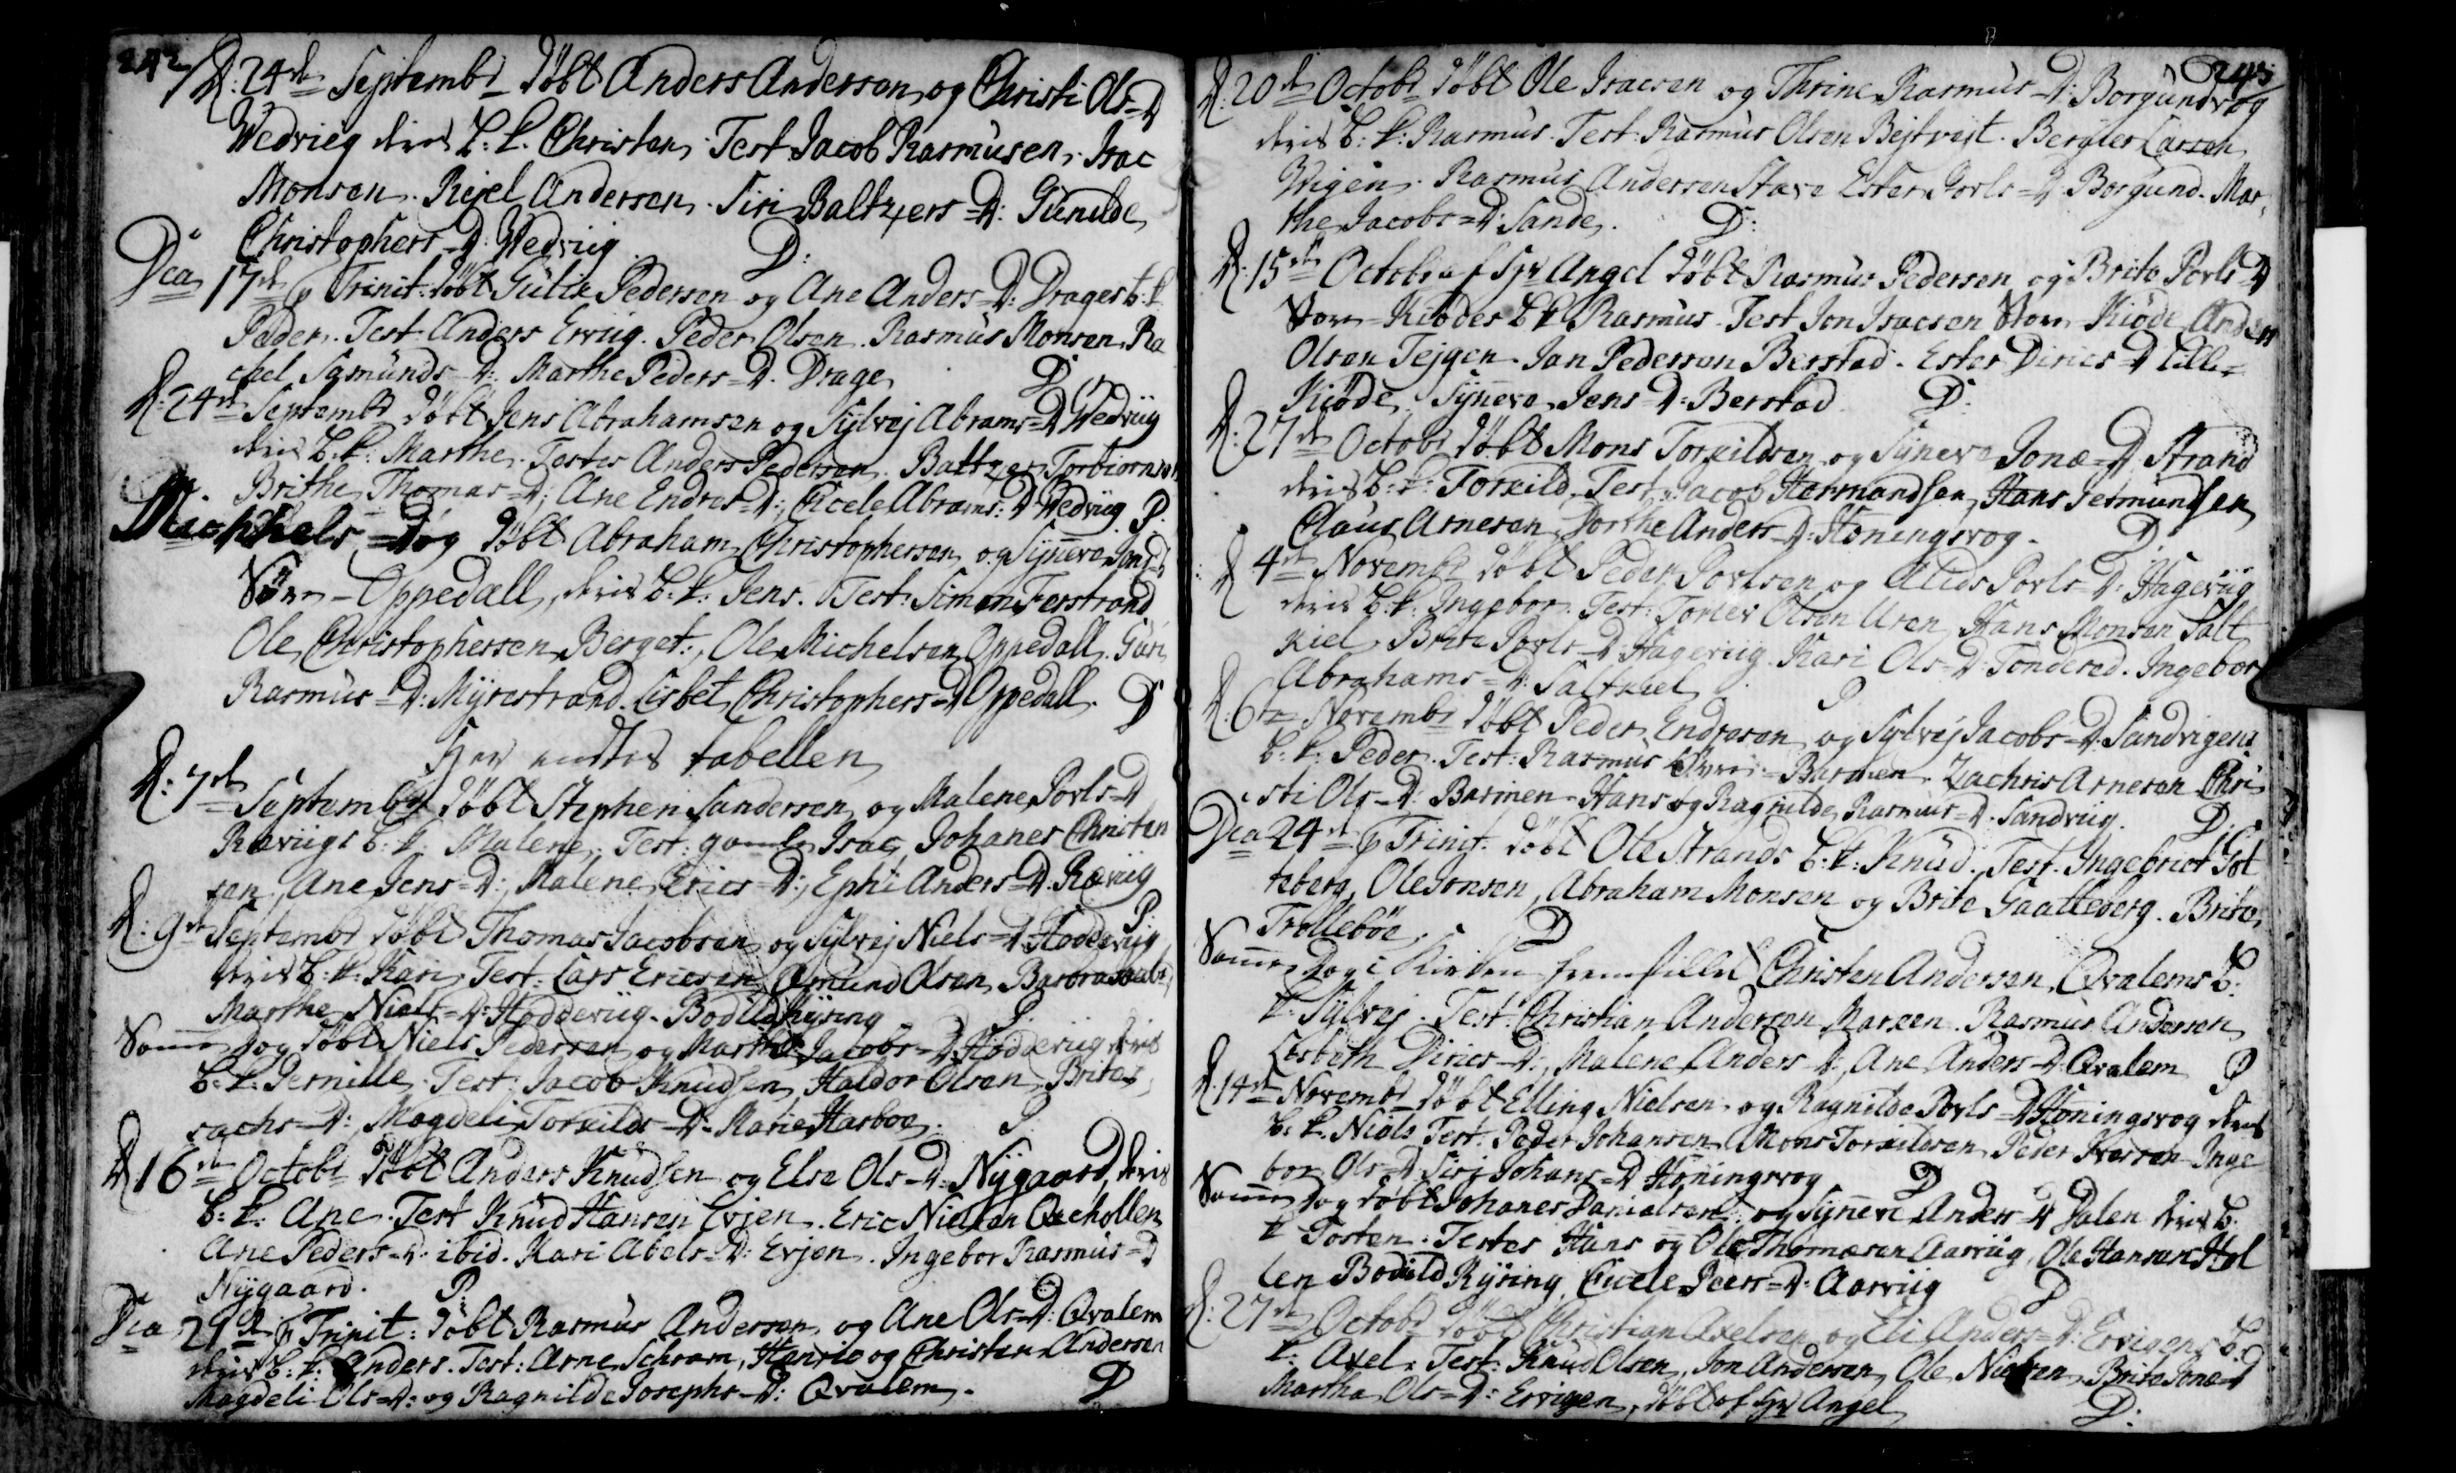 242
D: 24de Septembr døbt Anders Andersen og Christi Ols=D
Wedviig deris b: k. Christen. Test Jacob Rasmusen. Isac
Monsen. Rejel Andersen. Siri Baltzers=D: Gunilde
Christophers=D: Wedviig. D:
Dca 17de p Trinit: døbt Gulik Pedersen og Ane Anders=D: Drages b: k
Peder. Test: Anders Erviig. Peder Olsen. Rasmus Monsen. Ra
chel Sigmunds=D: Marthe Peders=D. Drage. D
D: 24de Septembr døbt Jens Abrahamsen og Sylvej Abrams=D Wedviig
deris b: k: Marthe. Testes Anders Pedersen. Baltzer Torbiornsen
Brithe Thomas=D: Ane Endres=D: Cicele Abrams=D Wedviig. P.
Michels=Dag døbt Abraham Christophersen og Synneve Jens=D
Nörre-Oppedall, deris b: k: Jens. Test: Simon Ferstrand
Ole Christophersen Berget, Ole Michelsen Oppedall. Guri
Rasmus=D: Myrestrand. Lisbet Christophers=D Oppedall. D
Her endtes tabellen
D: 7de Septembr døbt Stephen Sandersen og Malene Povls=D
Ræviigs b: k: Malene. Test: gamle Isac, Johanes Christen
sen, Ane Jens=D:, Malene Erics=D:, Ephi Anders=D. Ræviig
P:
D: 9de Septembr døbt Thomas Jacobsen og Sylvej Niels=D Hoddeviig
deris b: k: Kari. Test: Lars Ericsen, Amund Olsen, Barbra
Marthe Niels=D: Hoddeviig. Bodild Rysing P.
Samme dag døbt Niels Pedersen og Marthe Jacobs=D: Hoddeviig deris
b: k: Pernille. Test: Jacob Knudsen, Haldor Olsen, Brite I
sachs=D:, Magdeli Torkilds=D. Marie Harboe. P.
D 16de Octobr døbt Anders Knudsen og Else Ols=D: Nygaard, deris
b: k: Ane. Test Knud Hansen Evjen. Eric Nielsen
Ane Peders=D: ibid. Kari Abels=D: Evjen. Ingebor Rasmus=D
Nygaard. P.
Dca 21de p Trinit: døbt Rasmus Andersen og Ane Ols=D: Qvalem
deris b: k: Anders. Test: Arne Schram, Henric og Christen Andersen
Magdeli Ols=D: og Ragnilde Josephs=D: Qvalem. D
243
D: 20de Octobr døbt Ole Isacsen og Thrine Rasmus=D: Borgundvog
deris b: k: Rasmus. Test: Rasmus Olsen Bejtvejt. Bergier Larsen
Wigen. Rasmus Andersen Stave Ester Povls=D Borgund. Mar,
the Jacobs=D: Sande. D:
D: 15de Octobr af Hr Angel døbt Rasmus Pedersen og Brite Povls=D
Store-Kiødes b k Rasmus. Test Jon Isacsen Store Kiøde Anders
Olsen Tejgen. Jan Pedersen Berstad. Ester Dirics=D Lille=
Kiøde. Synneve Jens=D: Berstad D:
D: 27de Octobr døbt Mons Torkildsen og Synneve Jonæ=D: Strand
deris b: k: Torkild. Test: Jacob Hermandsen, Hans Germundsen
Claus Arnesen, Dorthe Anders=D: Honingsvog. D
D 4de Novembr døbt Peder Povlsen og Alids Povls=D: Hageviig
deris b: k: Ingebor. Test: Torlev Olsen Uren, Hans Monsen Salt
kiel. Brite Povls=D: Hageviig. Kari Ols=D: Tondered. Ingebor
Abrahams=D: Saltkiel P
D: 6te Novembr døbt Peder Endresen og Sylvej Jacobs=D: Sandvigens
b: k: Peder. Test: Rasmus Barmen. Zachris Arnesen Chri
sti Ols=D: Barmen. Hans og Ragnilde Rasmus=D. Sandviig. D:
Dca 24de p Trinit. døbt Ole Strands b: k: Knud. Test. Ingebrict Got
teberg, Ole Jonsen, Abraham Monsen og Brite Gaatteberg. Brite
Trollebøe. D
Samme Dag i Kirken fremstillet Christen Andersen Qvalems b:
k: Sylvej. Test: Christian Andersen Marken. Rasmus Andersen
Lisbeth Dirics=D:, Malene Anders=D:, Ane Anders=D: Qvalem P
D: 14de Novembr døbt Elling Nielsen og Ragnilde Povls=D Honingsvog deris
b: k: Niels Test: Peder Johansen Mons Torkildsen Peder Iversen Inge
bor Ols=D Siri Johans=D Honingsvog D
Samme Dag døbt Johanes Danielsen og Synneve Anders=D Dalen deris b:
k Tosten. Testes Hans og Ole Thomæsen Aarviig, Ole Hansen Hol
len Bodild Rysing, Cicele Peers=D: Aarviig D
D: 27de Octobr døbt Christian Axelsen og Eli Anders=D: Ervigens b:
k: Axel. Test: Knud Olsen, Jon Andersen, Ole Nielsen Brite Jonæ=D
Martha Ols=D: Ervigen, døbt af Hr Angel D: